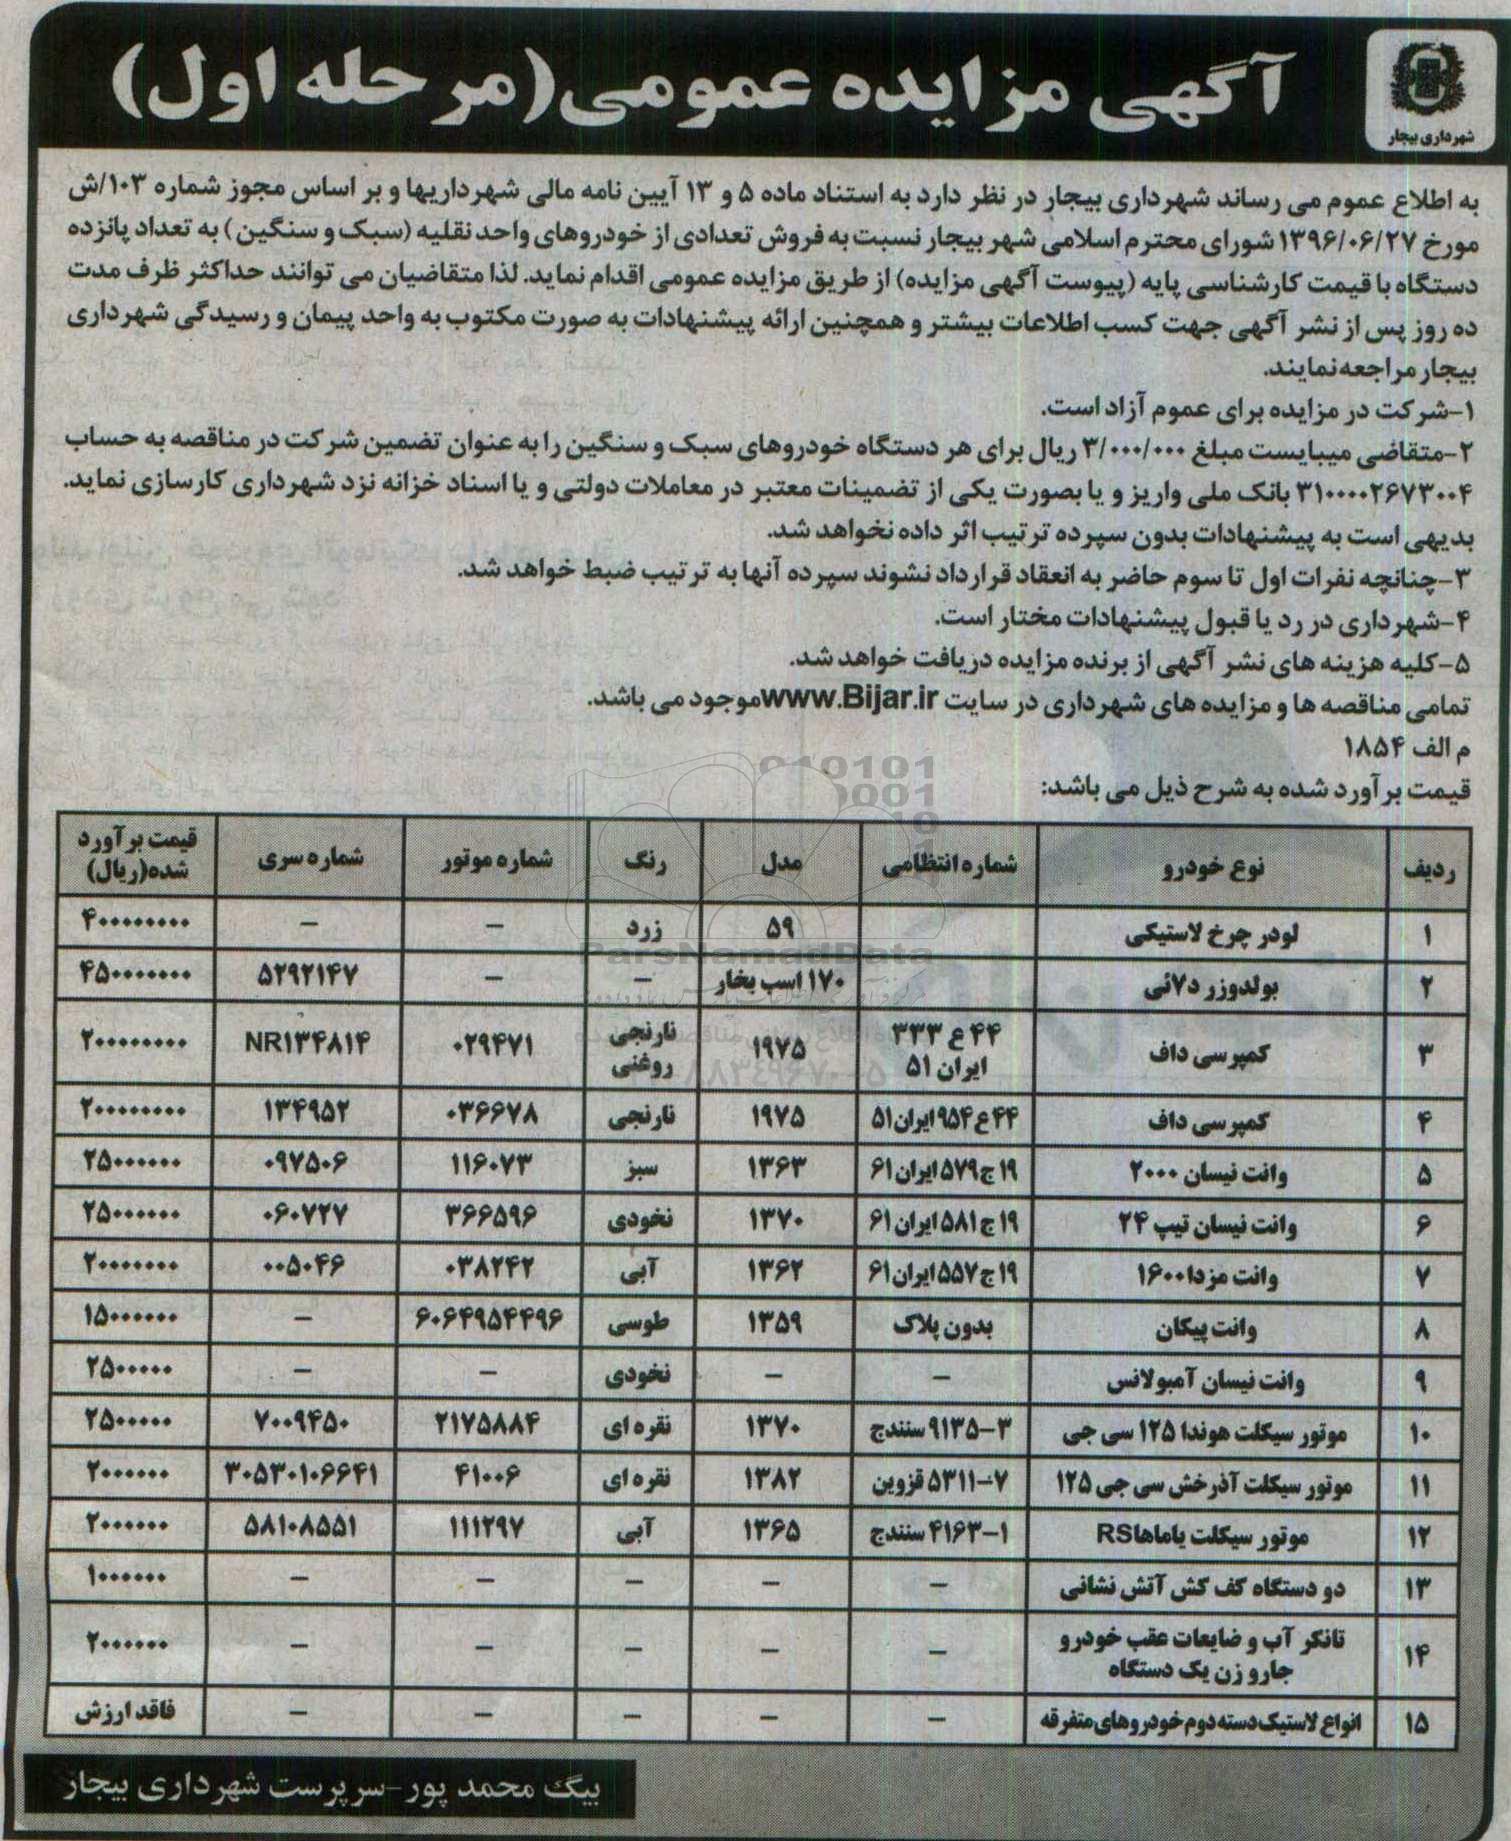 آگهی مزایده عمومی (مرحله اول)
شهرداری بیجار
به اطلاع عموم می رساند شهرداری بیجار در نظر دارد به استناد ماده ۵ و ۱۳ آیین نامه مالی شهرداریها و بر اساس مجوز شماره ۱۰۳/ش
مورخ ۱۳۹۶/۰۶/۲۷ شورای محترم اسلامی شهر بیجار نسبت به فروش تعدادی از خودروهای واحد نقلیه (سبک و سنگین) به تعداد پانزده
دستگاه با قیمت کارشناسی پایه (پیوست آگهی مزایده) از طریق مزایده عمومی اقدام نماید. لذا متقاضیان می توانند حداکثر ظرف مدت
ده روز پس از نشر آگهی جهت کسب اطلاعات بیشتر و همچنین ارائه پیشنهادات به صورت مکتوب به واحد پیمان و رسیدگی شهرداری
بیجار مراجعه نمایند.
۱-شرکت در مزایده برای عموم آزاد است.
۲-متقاضی میبایست مبلغ ۳/۰۰۰/۰۰۰ ریال برای هر دستگاه خودروهای سبک و سنگین را به عنوان تضمین شرکت در مناقصه به حساب
۳۱۰۰۰۰۲۶۷۳۰۰۴ بانک ملی واریز و یا بصورت یکی از تضمینات معتبر در معاملات دولتی و یا اسناد خزانه نزد شهرداری کارسازی نماید.
بدیهی است به پیشنهادات بدون سپرده ترتیب اثر داده نخواهد شد.
۳-چنانچه نفرات اول تا سوم حاضر به انعقاد قرارداد نشوند سپرده آنها به ترتیب ضبط خواهد شد.
۴-شهرداری در رد یا قبول پیشنهادات مختار است.
۵-کلیه هزینه های نشر آگهی از برنده مزایده دریافت خواهد شد.
تمامی مناقصه ها و مزایده های شهرداری در سایت www.Bijar.ir موجود می باشد.
م الف ۱۸۵۴
قیمت برآورد شده به شرح ذیل می باشد:
ردیف نوع خودرو شماره انتظامی مدل رنگ شماره موتور شماره سری قیمت برآورد شده(ریال)
۱ لودر چرخ لاستیکی ۵۹ زرد – – ۴۰۰۰۰۰۰۰۰
۲ بولدوزر د۷ئی ۱۷۰ اسب بخار – – ۵۲۹۲۱۴۷ ۴۵۰۰۰۰۰۰۰
۳ کمپرسی داف ۴۴ ع ۳۳۳ ایران ۵۱ ۱۹۷۵ نارنجی روغنی ۰۲۹۴۷۱ NR۱۳۴۸۱۴ ۲۰۰۰۰۰۰۰۰۰
۴ کمپرسی داف ۴۴ ع ۹۵۴ ایران ۵۱ ۱۹۷۵ نارنجی ۰۳۶۶۷۸ ۱۳۴۹۵۲ ۲۰۰۰۰۰۰۰۰۰
۵ وانت نیسان ۲۰۰۰ ۱۹ ج ۵۷۹ ایران ۶۱ ۱۳۶۳ سبز ۱۱۶۰۷۳ ۰۹۷۵۰۶ ۲۵۰۰۰۰۰۰
۶ وانت نیسان تیپ ۲۴ ۱۹ ج ۵۸۱ ایران ۶۱ ۱۳۷۰ نخودی ۳۶۶۵۹۶ ۰۶۰۷۲۷ ۲۵۰۰۰۰۰۰
۷ وانت مزدا ۱۶۰۰ ۱۹ ج ۵۵۷ ایران ۶۱ ۱۳۶۲ آبی ۰۳۸۲۴۲ ۰۰۵۰۴۶ ۲۰۰۰۰۰۰۰
۸ وانت پیکان بدون پلاک ۱۳۵۹ طوسی ۶۰۶۴۹۵۴۴۹۶ – ۱۵۰۰۰۰۰۰
۹ وانت نیسان آمبولانس – – نخودی – – ۲۵۰۰۰۰۰
۱۰ موتور سیکلت هوندا ۱۲۵ سی جی ۹۱۳۵-۳ سنندج ۱۳۷۰ نقره ای ۲۱۷۵۸۸۴ ۷۰۰۹۴۵۰ ۲۵۰۰۰۰۰
۱۱ موتور سیکلت آذرخش سی جی ۱۲۵ ۵۳۱۱-۷ قزوین ۱۳۸۲ نقره ای ۴۱۰۰۶ ۳۰۵۳۰۱۰۶۶۴۱ ۲۰۰۰۰۰۰
۱۲ موتور سیکلت یاماها RS ۴۱۶۳-۱ سنندج ۱۳۶۵ آبی ۱۱۱۲۹۷ ۵۸۱۰۸۵۵۱ ۲۰۰۰۰۰۰
۱۳ دو دستگاه کف کش آتش نشانی – – – – – ۱۰۰۰۰۰۰
۱۴ تانکر آب و ضایعات عقب خودرو جارو زن یک دستگاه – – – – – ۲۰۰۰۰۰۰
۱۵ انواع لاستیک دسته دوم خودروهای متفرقه – – – – – فاقد ارزش
بیگ محمد پور-سرپرست شهرداری بیجار
ParsNamadData